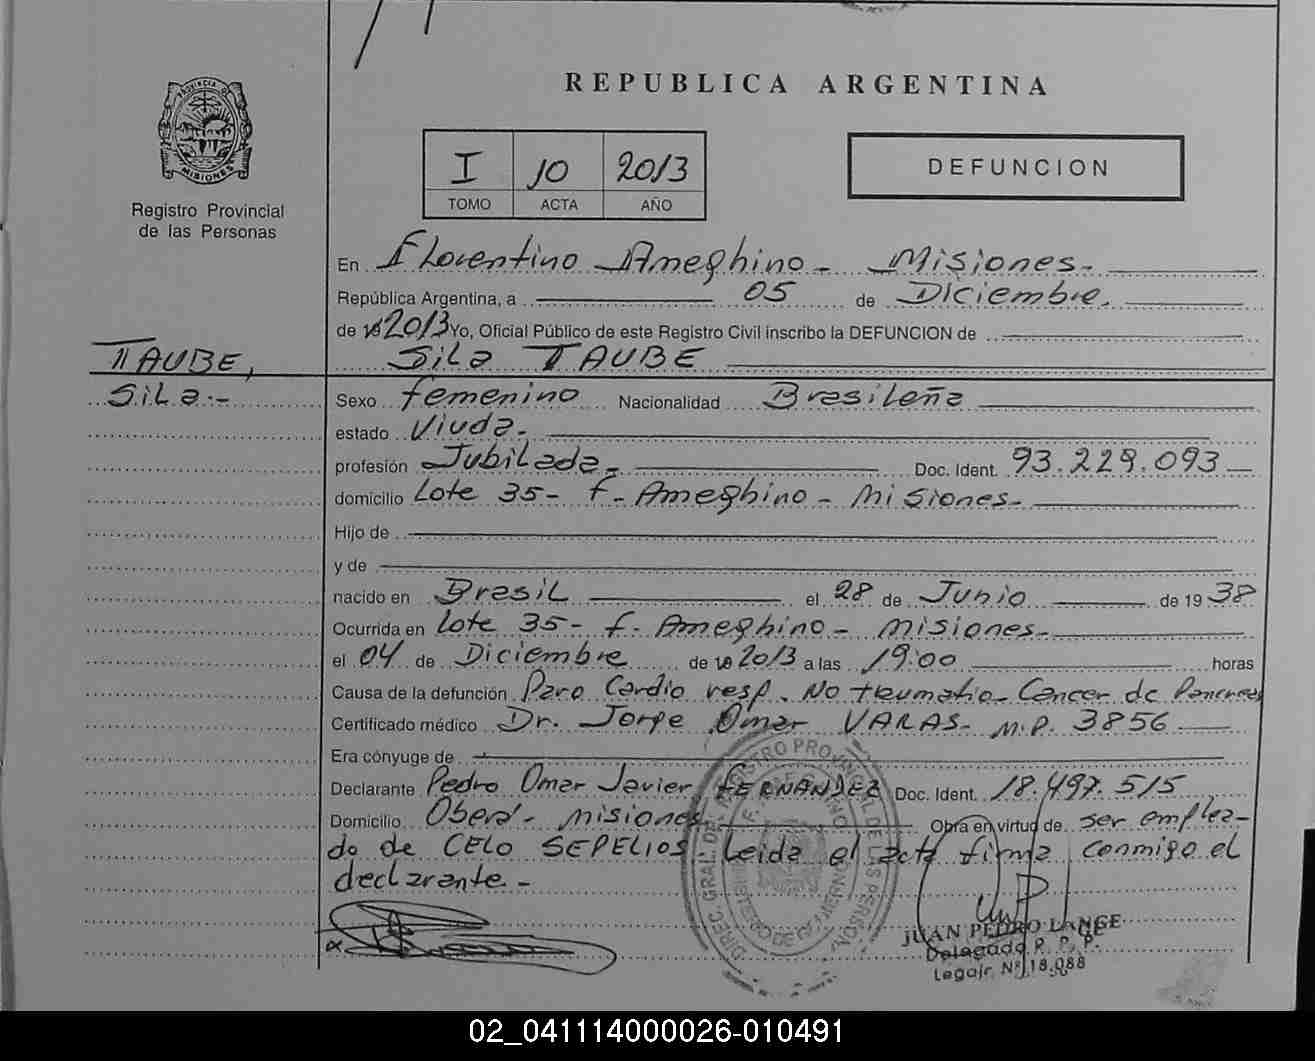 REPUBLICA ARGENTINA
PROVINCIA DE
MISIONES
Registro Provincial
de las Personas
I 10 2013
TOMO ACTA AÑO
DEFUNCION
En Florentino Ameghino - Misiones -
República Argentina, a 05 de Diciembre.
de 2013 Yo, Oficial Público de este Registro Civil inscribo la DEFUNCION de
Sila TAUBE
TAUBE,
Sila.-
Sexo femenino Nacionalidad Brasileña
estado Viuda.-
profesión Jubilada.- Doc. Ident. 93.229.093
domicilio Lote 35 - f. Ameghino - Misiones -
Hijo de
y de
nacido en Brasil el 28 de Junio de 1938
Ocurrida en Lote 35 - f. Ameghino - Misiones -
el 04 de Diciembre de 2013 a las 19:00 horas
Causa de la defunción Paro Cardio resp. No traumatio - Cancer de Pancreas
Certificado médico Dr. Jorge Omar VARAS - M.P. 3856
Era cónyuge de
Declarante Pedro Omar Javier FERNANDEZ Doc. Ident. 18.497.515
Domicilio Oberá - Misiones Obra en virtud de ser emplea-
do de CELO SEPELIOS. Leida el acta firma conmigo el
declarante.-
DIREC. GRAL. DEL REGISTRO PROVINCIAL DE LAS PERSONAS
MINISTERIO DE GOBIERNO
JUAN PEDRO LANGE
Delegado R. P. P.
Legajo Nº 18.088
02_041114000026-010491